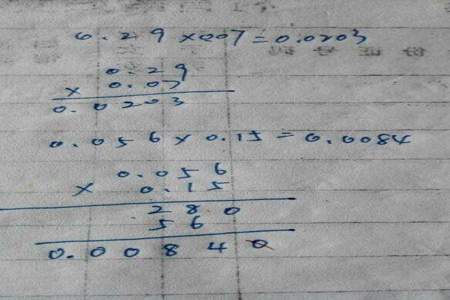 0.29×007=0.0203
0.29
× 0.07
0.0203
0.056×0.15=0.0084
0.056
× 0.15
280
56
0.00840